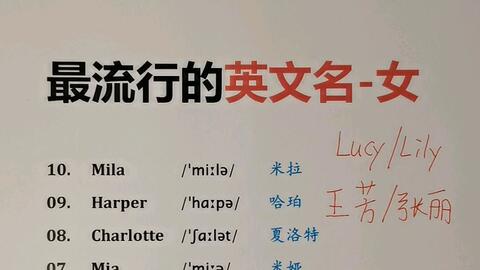 最流行的英文名-女
10. Mila /ˈmiːlə/ 米拉
Lucy/Lily
09. Harper /ˈhɑːpə/ 哈珀
王芳/张丽
08. Charlotte /ˈʃɑːlət/ 夏洛特
07. Mia /ˈmiːə/ 米娅